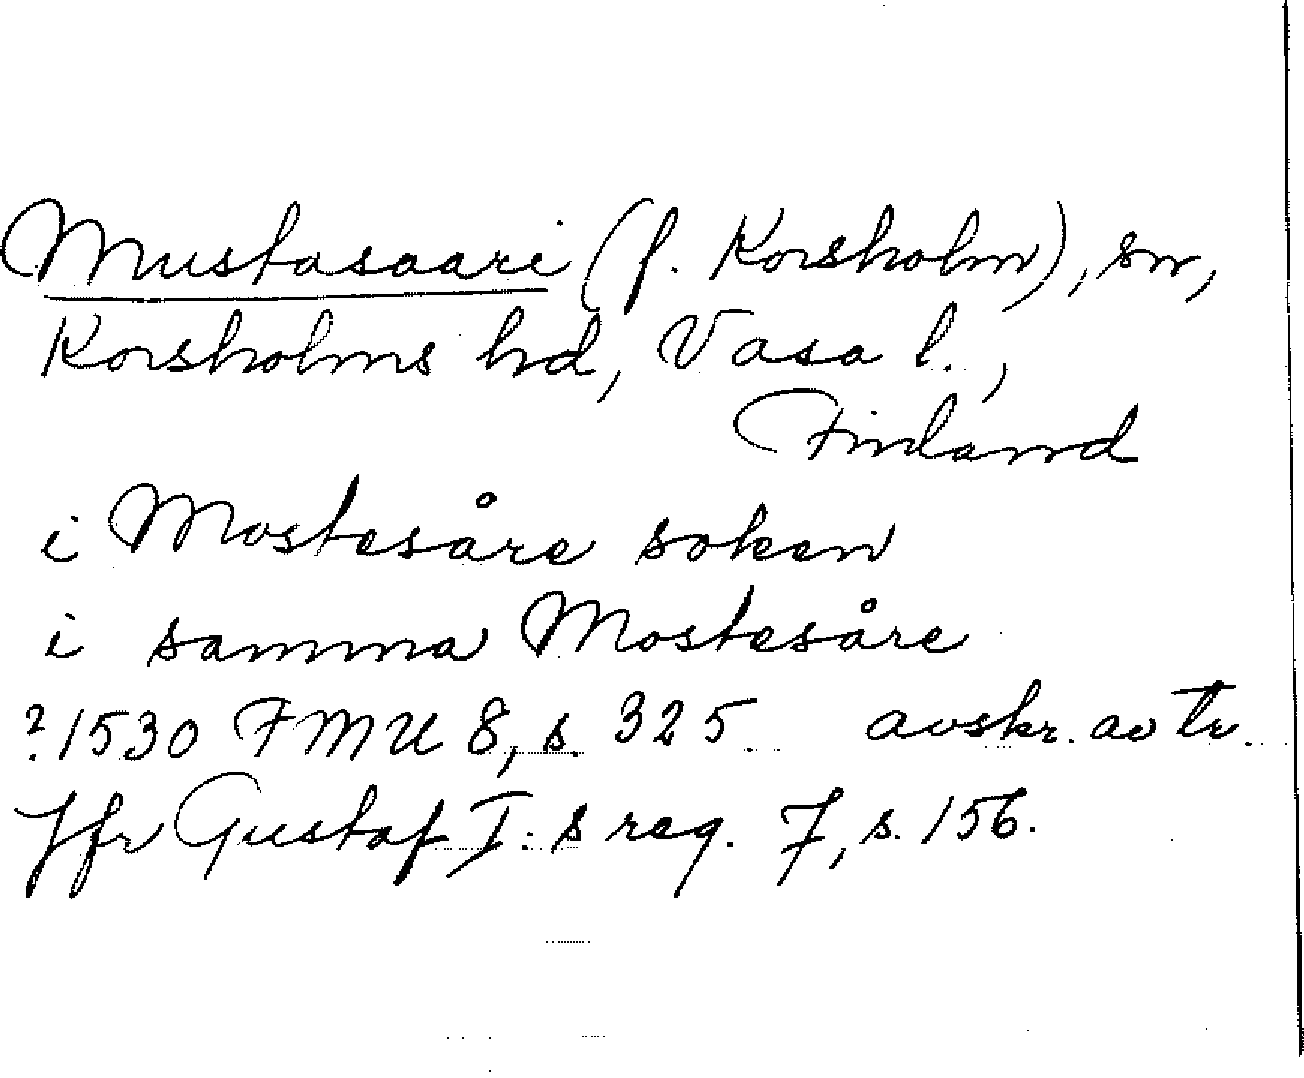 Mustasaari (f. Korsholm), sn,
Korsholms hd, Vasa l.,
Finland
i Mostesåre soken
i samma Mostesåre
? 1530 FMU 8, s. 325. avskr. av tr.
Jfr Gustaf I:s reg. 7, s. 156.